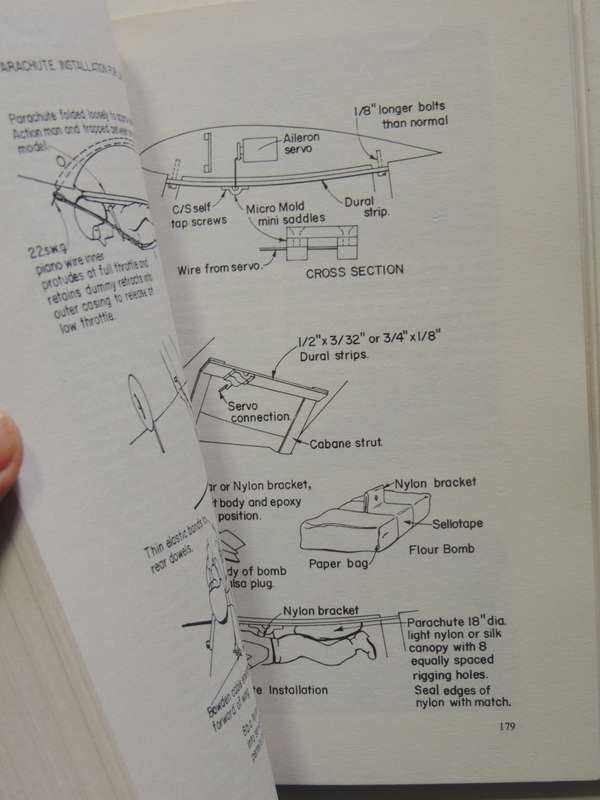 PARACHUTE INSTALLATION FOR
Parachute folded loosely to
Action man and trapped between
model.
22swg
piano wire inner
protudes at full throttle and
retains dummy retracts into
outer casing to release at
low throttle.
Thin elastic bands
rear dowels.
Bowden cable
forward of wing
1/8" longer bolts
than normal
Aileron
servo
C/S self
tap screws
Micro Mold
mini saddles
Dural
strip.
Wire from servo.
CROSS SECTION
1/2" x 3/32" or 3/4" x 1/8"
Dural strips.
Servo
connection.
Cabane strut.
or Nylon bracket,
body and epoxy
position.
dy of bomb
alsa plug.
Nylon bracket
Sellotape
Paper bag
Flour Bomb
Nylon bracket
Parachute 18" dia.
light nylon or silk
canopy with 8
equally spaced
rigging holes.
Seal edges of
nylon with match.
te Installation
179